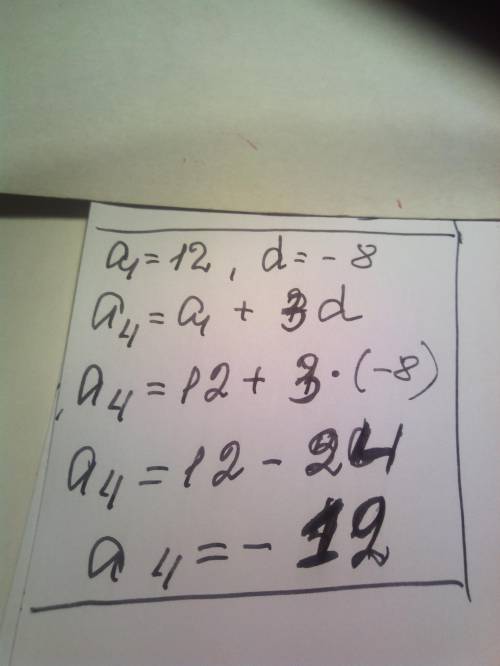 a₁ = 12, d = - 8
a₄ = a₁ + 3d
a₄ = 12 + 3 · (-8)
a₄ = 12 - 24
a₄ = - 12